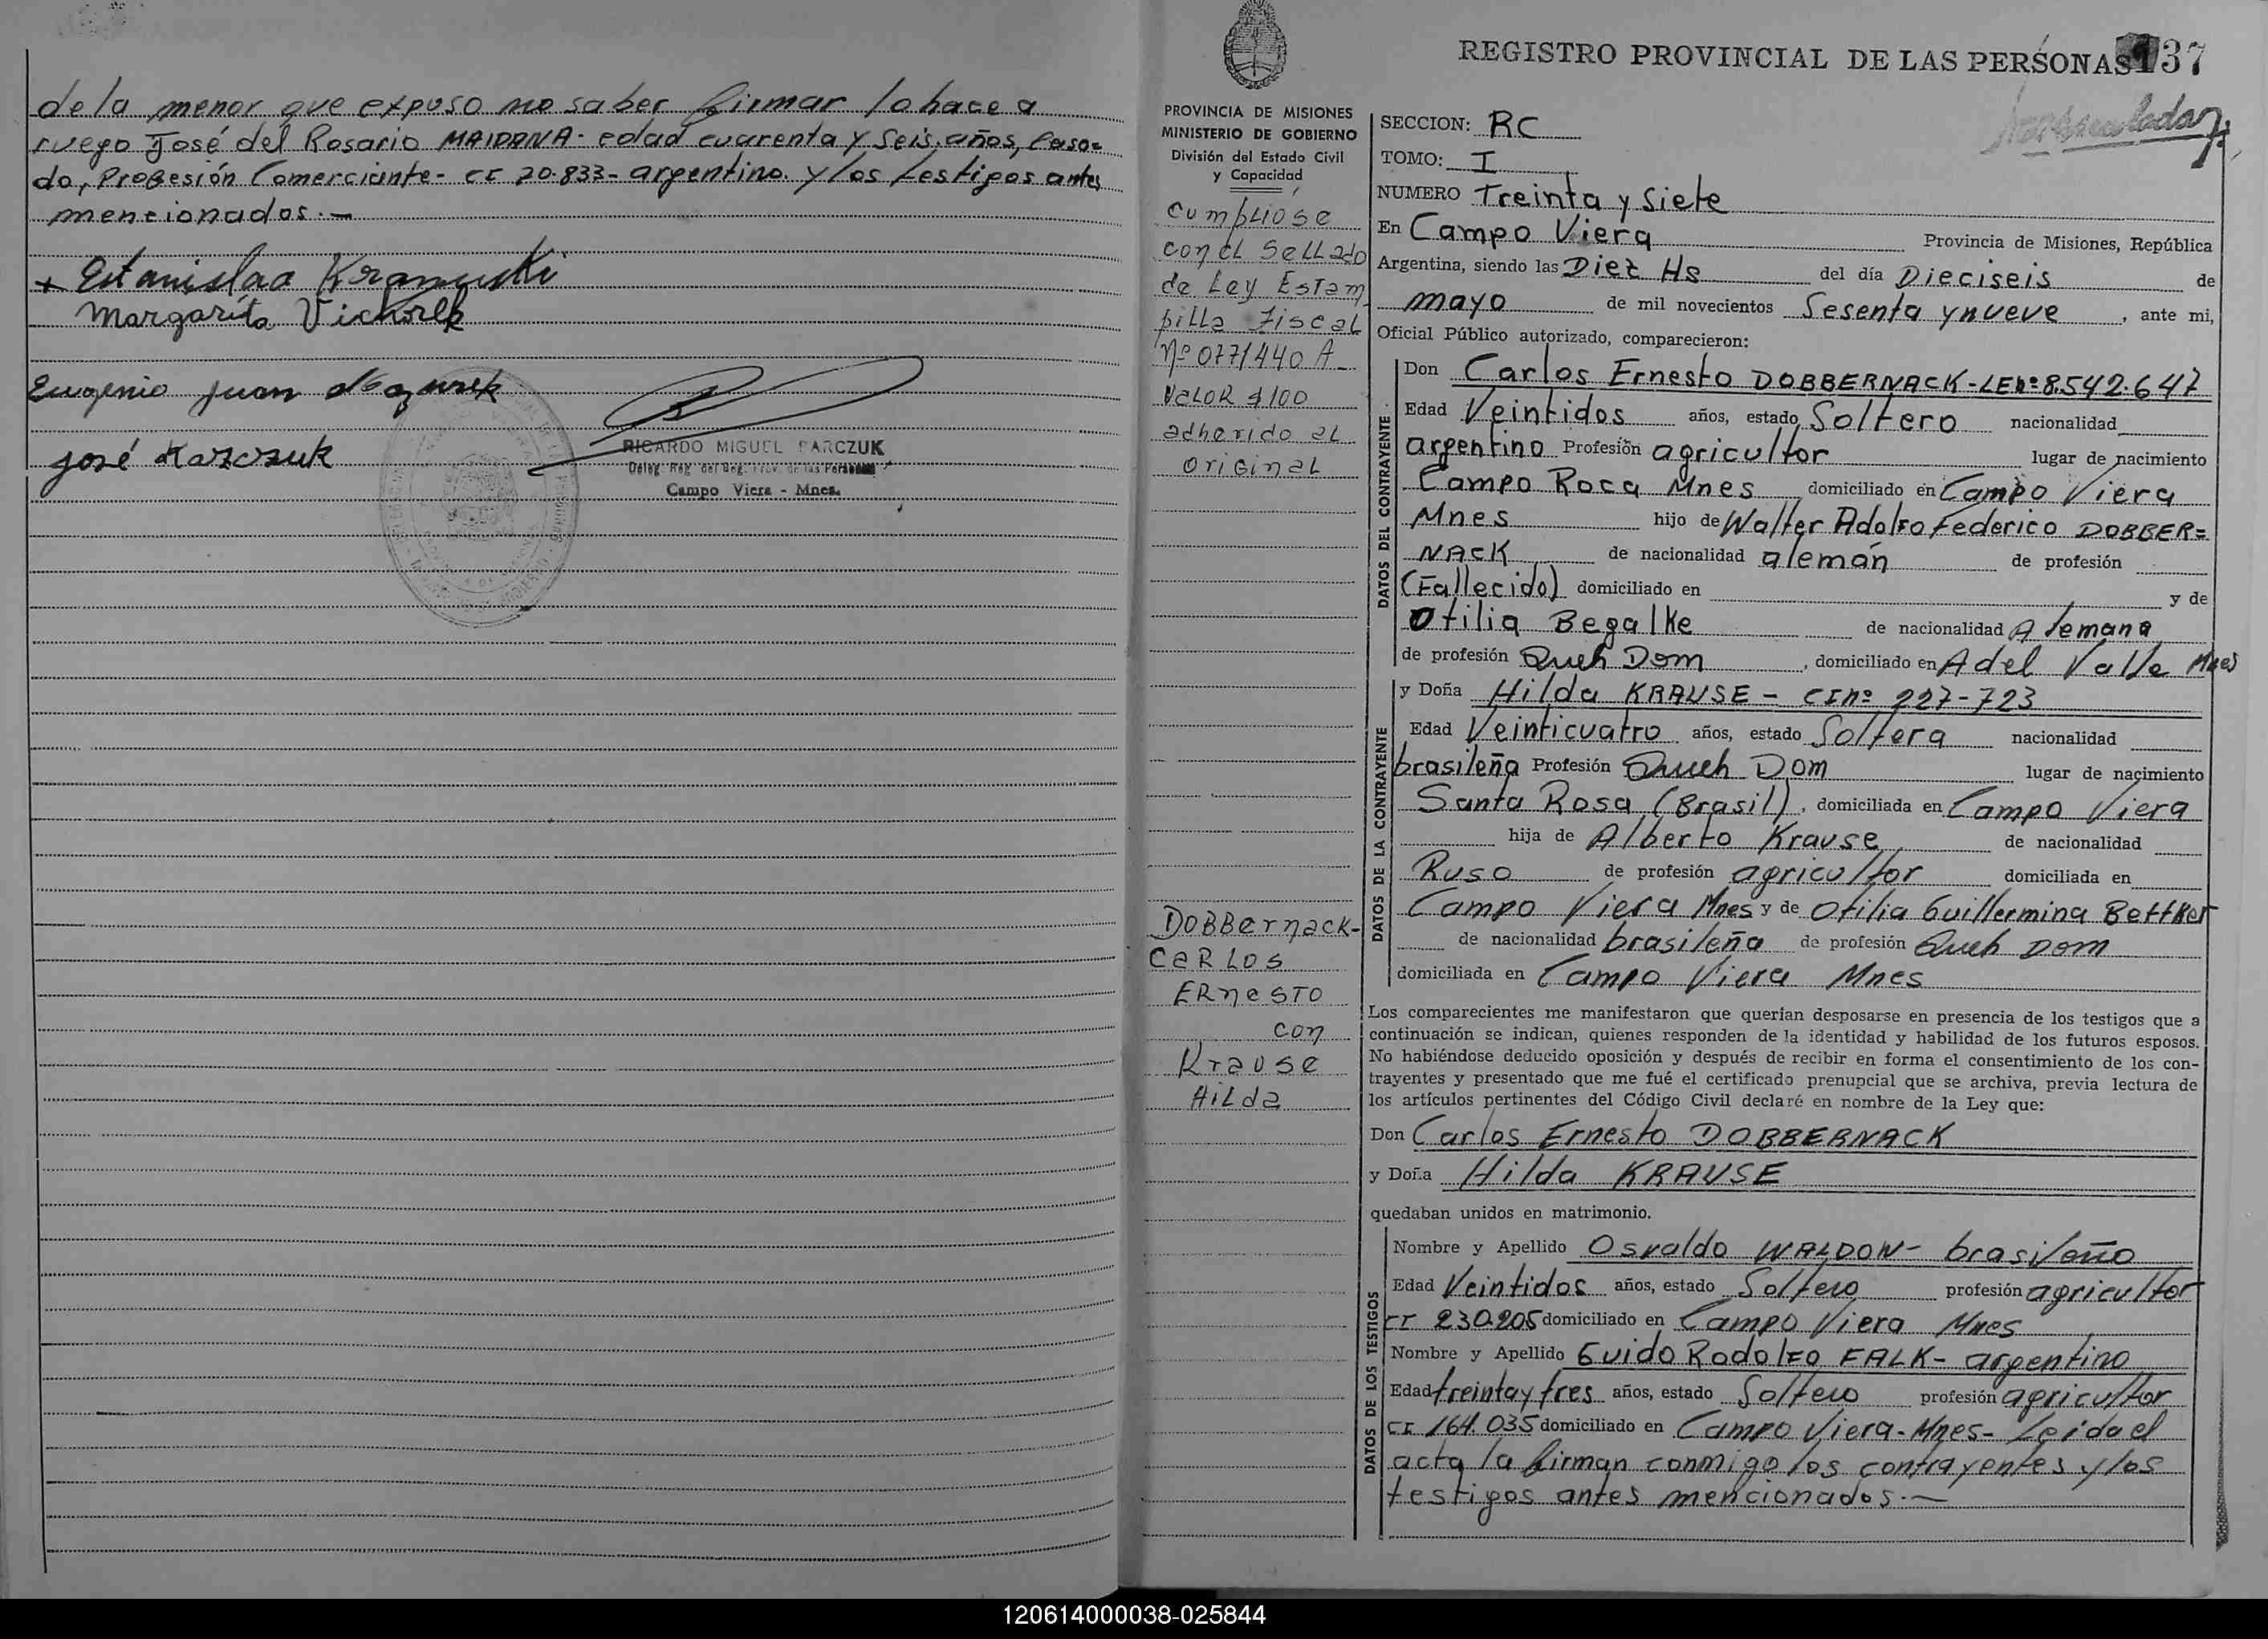 de la menor que expuso no saber firmar lo hace a
ruego José del Rosario MAIDANA- edad cuarenta y seis años, Casa=
do, Profesión Comerciante- CI 20.833- argentino y los testigos antes
mencionados.-
Estanislao
Margarita
Eugenio Juan
José
RICARDO MIGUEL PARCZUK
Campo Viera - Mnes.
REGISTRO PROVINCIAL DE LAS PERSONAS 137
PROVINCIA DE MISIONES
MINISTERIO DE GOBIERNO
División del Estado Civil
y Capacidad
cumplióse
con el Sellado
de Ley Estam
pilla Fiscal
Nº 077/440 A-
Valor $ 100
adherido al
original
DOBBernack-
CaRLos
ERnesto
con
Krause
HiLda
SECCION: RC
TOMO: I
NUMERO Treinta y siete
En Campo Viera Provincia de Misiones, República
Argentina, siendo las Diez Hs del día Dieciseis de
mayo de mil novecientos Sesenta y nueve, ante mi,
Oficial Público autorizado, comparecieron:
DATOS DEL CONTRAYENTE
Don Carlos Ernesto DOBBERNACK-LEnº8.542.647
Edad Veintidos años, estado Soltero nacionalidad
argentino Profesión agricultor lugar de nacimiento
Campo Roca Mnes domiciliado en Campo Viera
Mnes hijo de Walter Adolfo Federico DOBBER=
NACK de nacionalidad alemán de profesión
(Fallecido) domiciliado en y de
Otilia Begalke de nacionalidad Alemana
de profesión Queh Dom, domiciliado en A del Valle Mnes
DATOS DE LA CONTRAYENTE
y Doña Hilda KRAUSE - CInº 227-723
Edad Veinticuatro años, estado Soltera nacionalidad
brasileña Profesión Queh Dom lugar de nacimiento
Santa Rosa (Brasil), domiciliada en Campo Viera
hija de Alberto Krause de nacionalidad
Ruso de profesión agricultor domiciliada en
Campo Viera Mnes y de Otilia Guillermina Bettker
de nacionalidad brasileña de profesión Queh Dom
domiciliada en Campo Viera Mnes
Los comparecientes me manifestaron que querian desposarse en presencia de los testigos que a
continuación se indican, quienes responden de la identidad y habilidad de los futuros esposos.
No habiéndose deducido oposición y después de recibir en forma el consentimiento de los con-
trayentes y presentado que me fué el certificado prenupcial que se archiva, previa lectura de
los artículos pertinentes del Código Civil declaré en nombre de la Ley que:
Don Carlos Ernesto DOBBERNACK
y Doña Hilda KRAUSE
quedaban unidos en matrimonio.
DATOS DE LOS TESTIGOS
Nombre y Apellido Osvaldo WALDOW- brasileño
Edad Veintidos años, estado Soltero profesión agricultor
CI 230.205 domiciliado en Campo Viera Mnes
Nombre y Apellido Guido Rodolfo FALK- argentino
Edad treinta y tres años, estado Soltero profesión agricultor
CI 164.035 domiciliado en Campo Viera-Mnes- Leída el
acta la firman conmigo los contrayentes y los
testigos antes mencionados.-
120614000038-025844